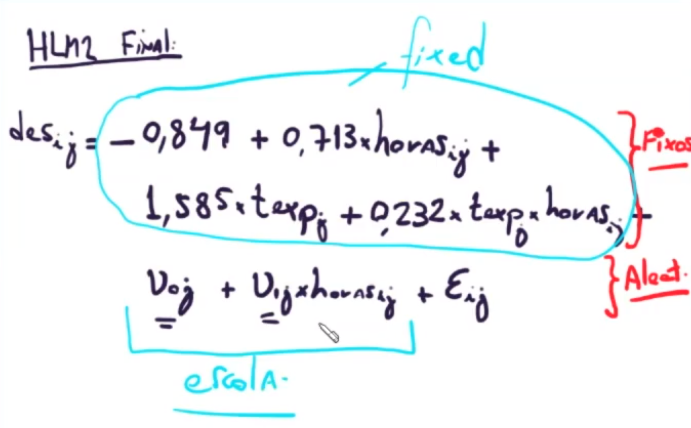 HLM2 Final:
fixed
des_ij = - 0,849 + 0,713 x horas_ij +
Fixos
1,585 x texp_j + 0,232 x texp_j x horas_ij +
υ_0j + υ_1j x horas_ij + ε_ij
Aleat.
escola.